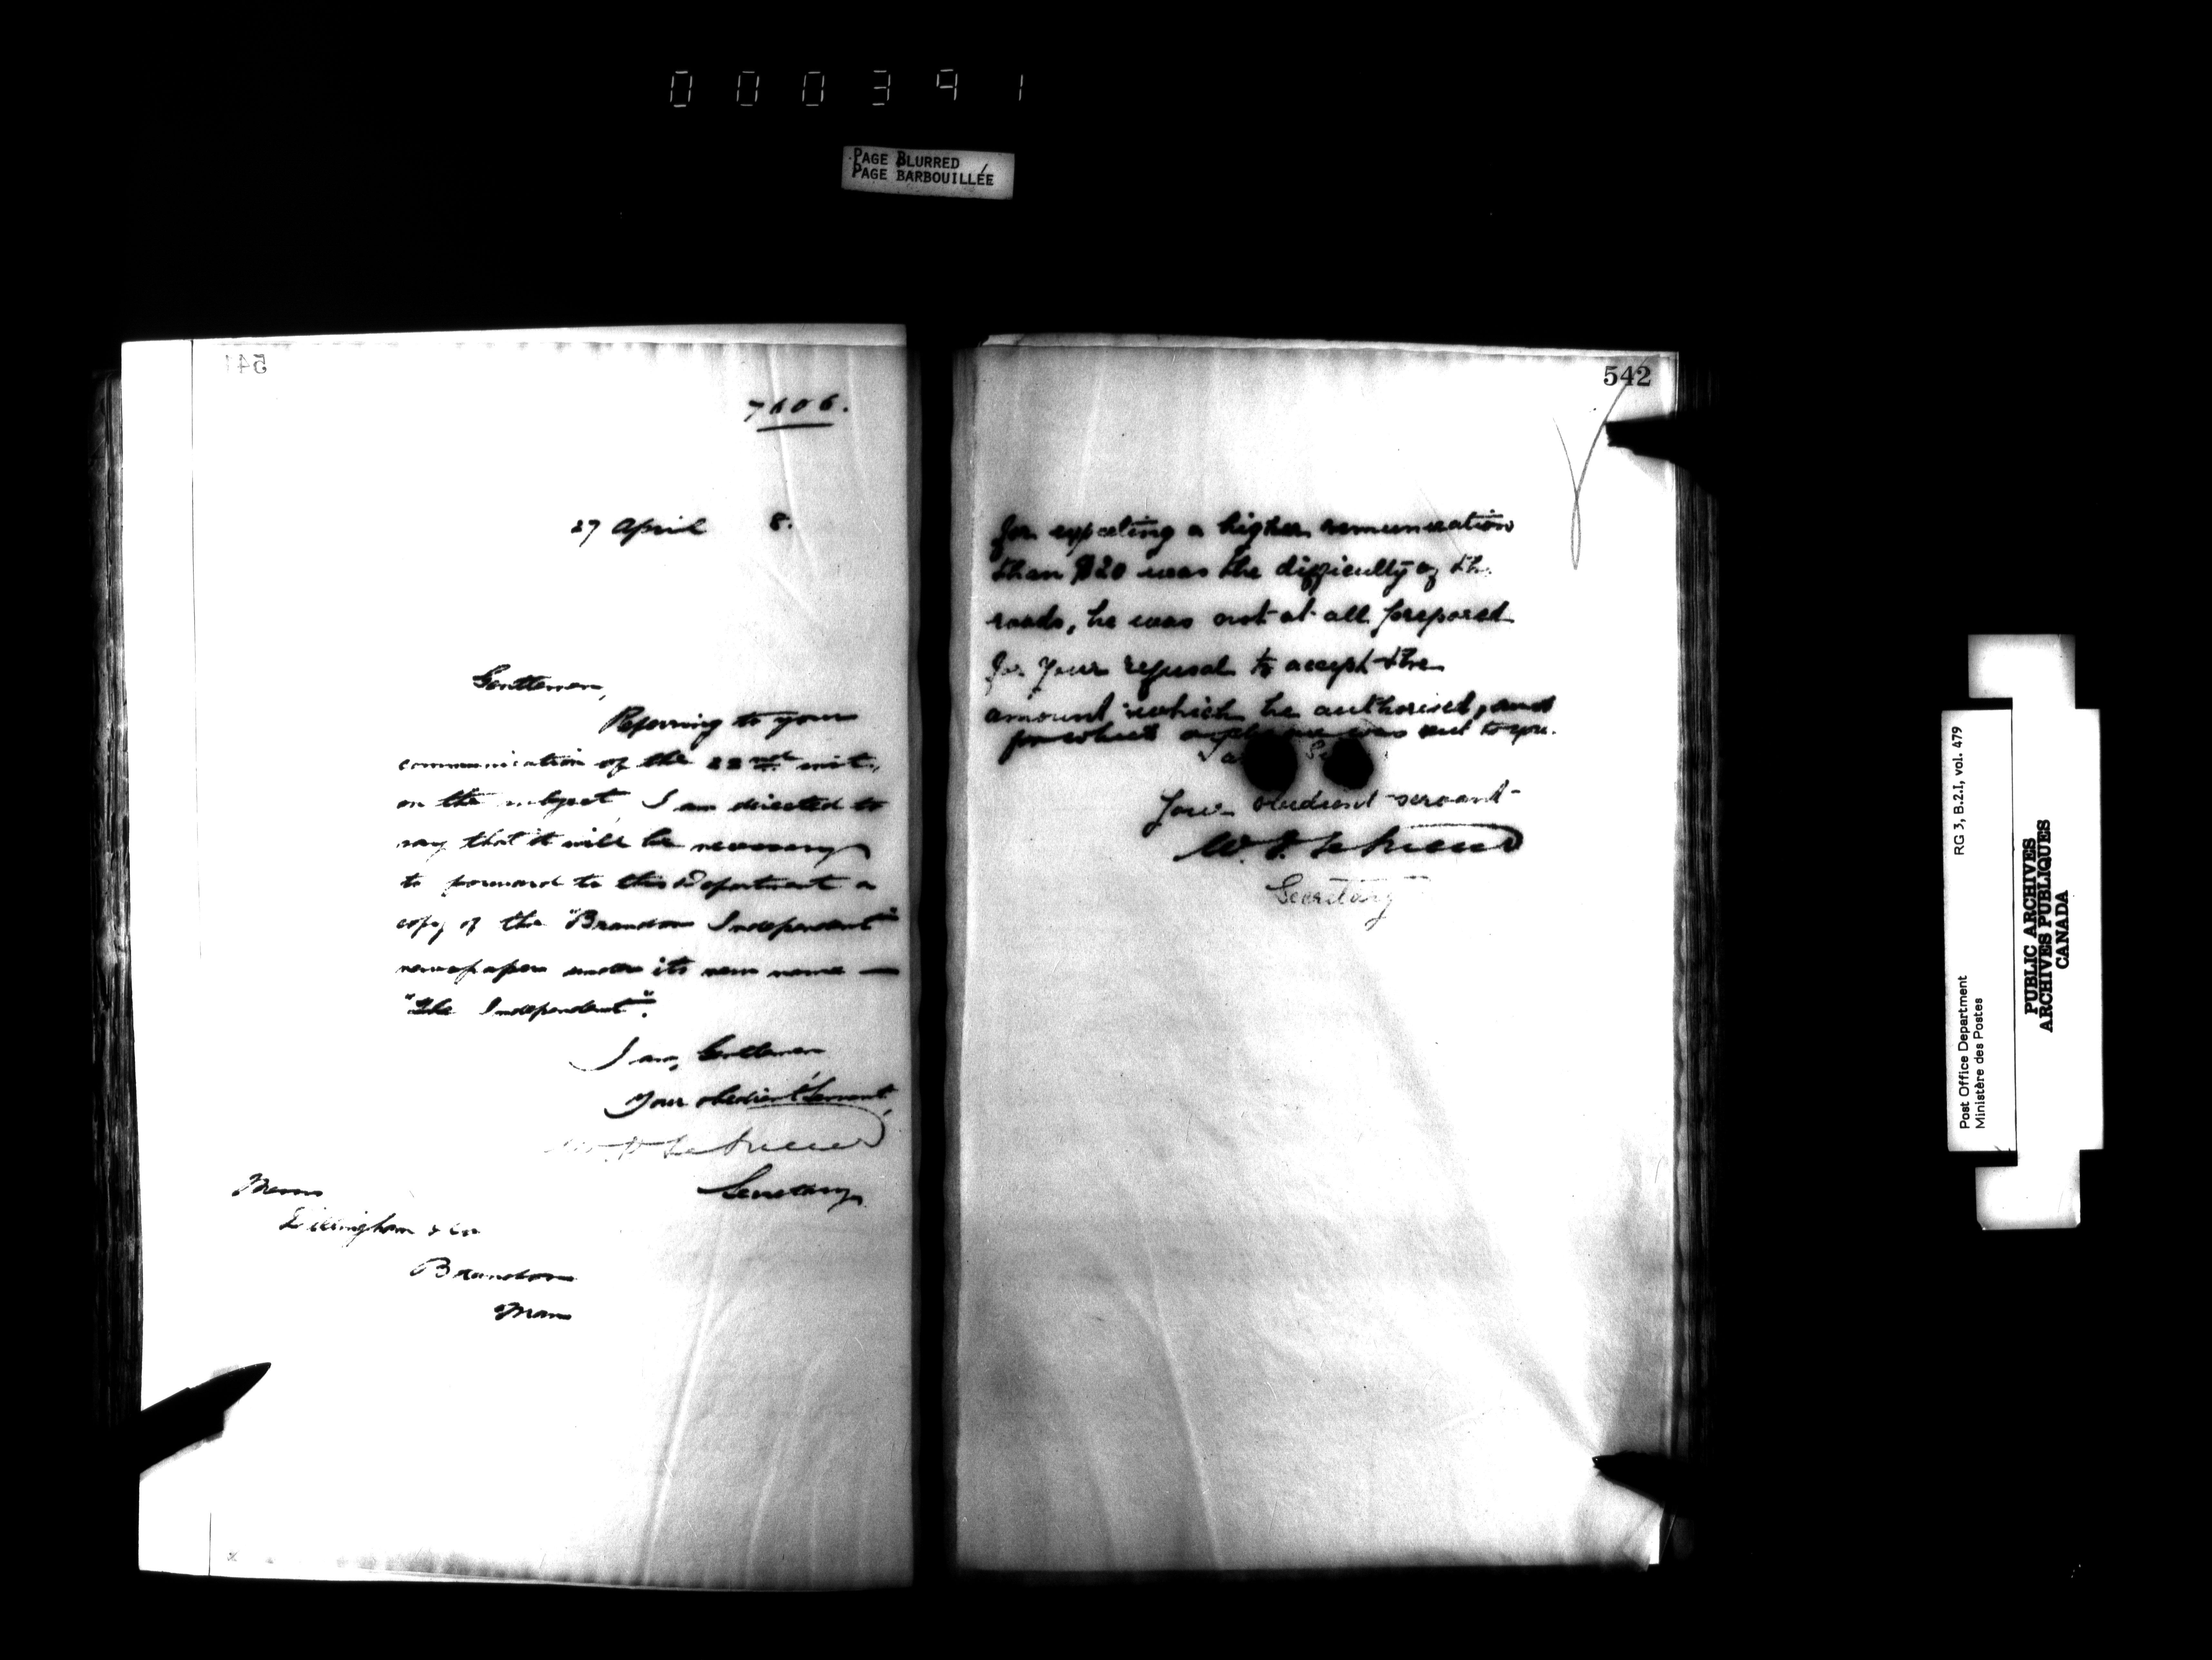 000391
PAGE BLURRED
PAGE BARBOUILLÉE
541
7606.
27 April 8.
Gentlemen,
Referring to your
communication of the 22nd inst,
on the subject, I am directed to
say that it will be necessary
to forward to this Department a
copy of the "Brandon Independent"
newspaper under its new name —
"The Independent".
I am, Gentlemen
Your obedient Servant,
Secretary
Messrs
Dillingham & Co
Brandon
Man
542
for expecting a higher remuneration
than $20 was the difficulty of the
roads, he was not at all prepared
for your refusal to accept the
amount which he authorised, and
for which a was sent to you.
Your obedient servant
Secretary
Post Office Department
Ministère des Postes
RG 3, B.2.I, vol. 479
PUBLIC ARCHIVES
ARCHIVES PUBLIQUES
CANADA